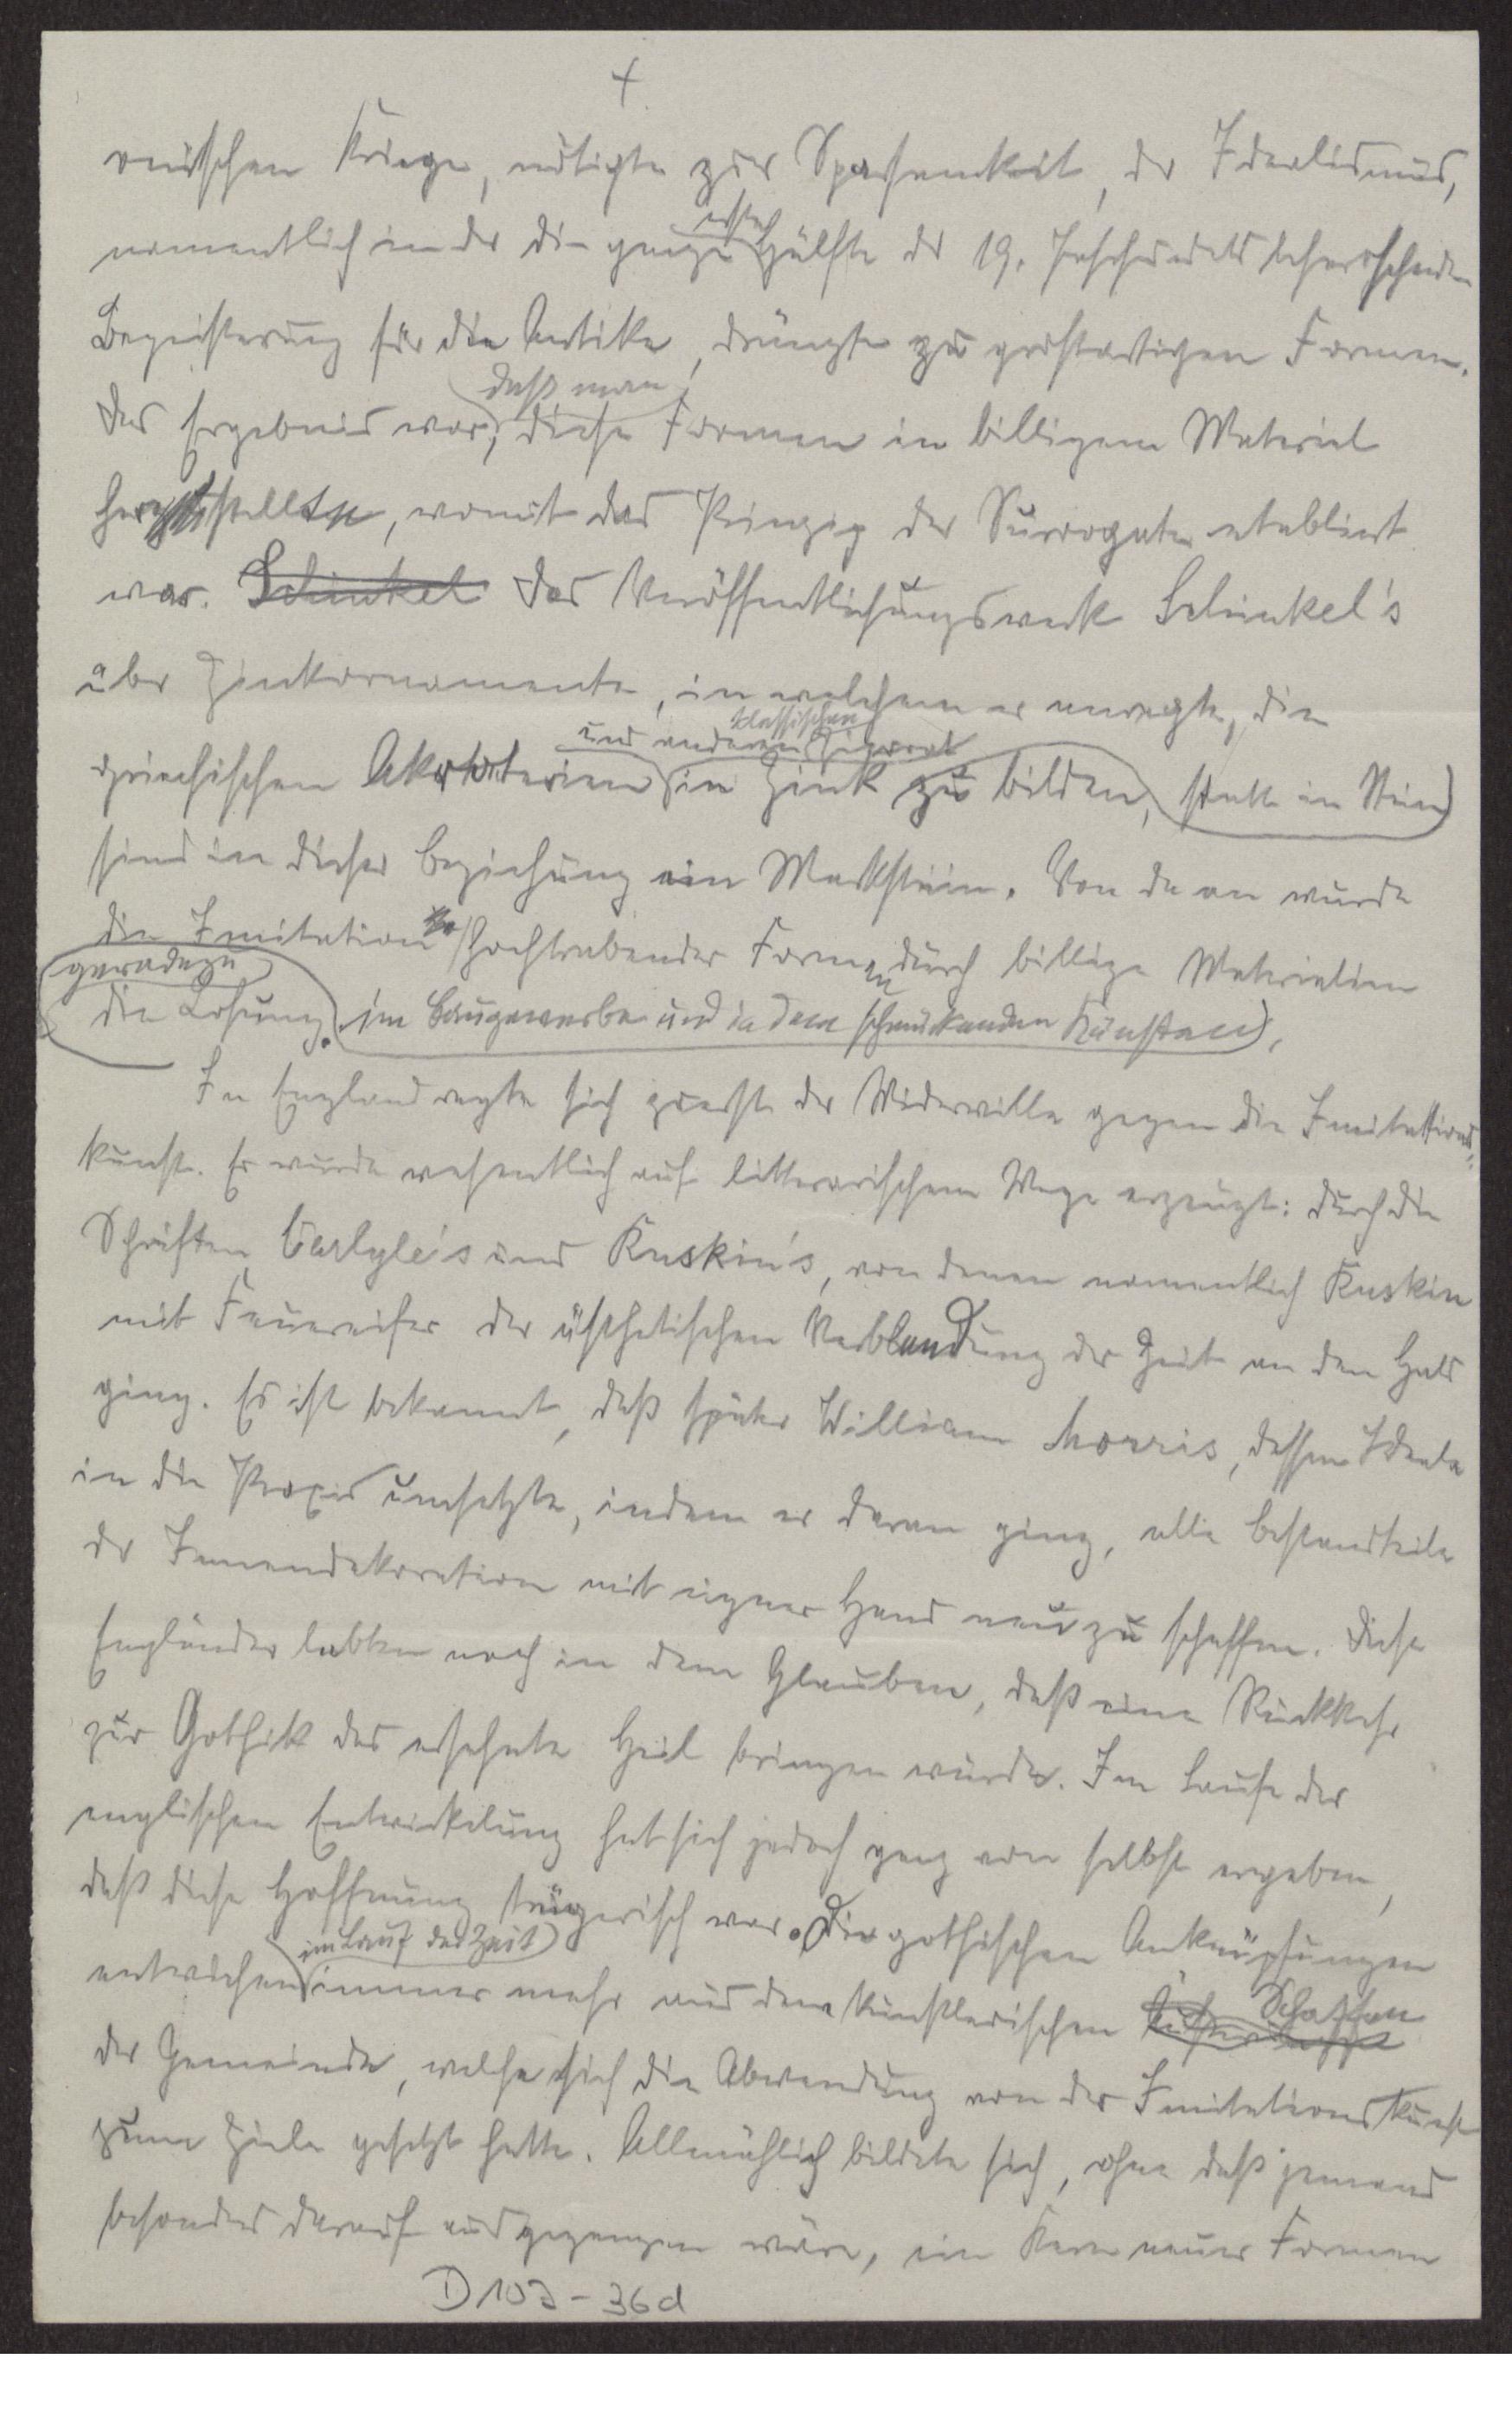 4.
onischen Kriege, nötigte zur Sparsamkeit, der Idealismus,
namentlich in der die ganze erste Hälfte des 19. Jahrhunderts beherrschende
Begeisterung für die Antike, drängte zu großartigen Formen.
daß man
Das Ergebnis war, diese Formen in billigem Material
herstellte, womit das Prinzip der Surrogate etabliert
war. Schinkel Das Veröffentlichungswerk Schinkel's
über Zinkornamente, in welchem er anregte, die
klassischen
und anderen Zierrat
griechischen Akroterien in Zink zu bilden, statt in Stein
sind in dieser Beziehung ein Markstein. Von da an wurde
die Imitation hochtrabender Formen durch billige Materialien
geradezu
die Losung im Baugewerbe und in den schmückenden Künsten.
In England regte sich zuerst der Widerwille gegen die Imitations-
kunst. Er wurde wesentlich auf litterarischem Wege erzeugt: durch die
Schriften Carlyle's und Ruskin's, von denen namentlich Ruskin
mit Feuereifer der ästhetischen Verblendung der Zeit an den Hals
ging. Es ist bekannt, daß später William Morris, dessen Ideale
in die Praxis umsetzte, indem er daran ging, alle Bestandteile
der Innendekoration mit eigner Hand neu zu schaffen. Diese
Engländer lebten noch in dem Glauben, daß eine Rückkehr
zur Gothik das ersehnte Heil bringen würde. Im Laufe der
englischen Entwickelung hat sich jedoch ganz von selbst ergeben,
daß diese Hoffnung trügerisch war. Die gothischen Anknüpfungen
im Lauf der Zeit
entwichen immer mehr aus dem künstlerischen Schaffen
der Gemeinde, welche sich die Abwendung von der Imitationskunst
zum Ziele gesetzt hatte. Allmählich bildete sich, ohne daß jemand
besonders darauf ausgegangen wäre, ein Kern neuer Formen
D 103-36d